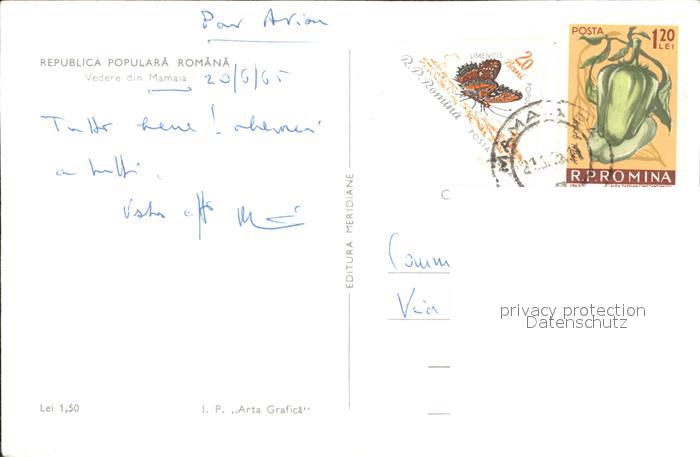 Par Avion
REPUBLICA POPULARĂ ROMÂNĂ
Vedere din Mamaia 20/6/65
Tutto bene!
a tutti.
Vostro aff
Lei 1,50
I. P. „Arta Grafică"
EDITURA MERIDIANE
LIMENITIS
20
Bani
POPULI
R.P.Romina
POSTA
MAMAIA
POSTA
1,20
LEI
R.P.ROMINA
C
Comm
Via
privacy protection
Datenschutz